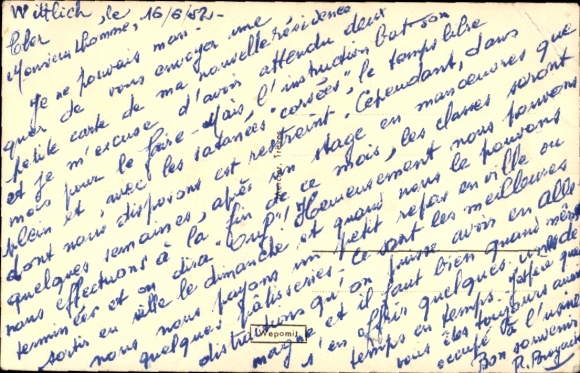 Wittlich, le 16/6/52.
Cher
Monsieur Thomas,
Je ne pouvais man-
quer de vous envoyer une
petite carte de ma nouvelle résidence
et je m'excuse d'avoir attendu deux
mois pour le faire. Mais, l'instruction bat son
plein et, avec les satanées "corsées", le temps libre
dont nous disposons est restreint. Cependant, dans
quelques semaines, après un stage en manœuvres que
nous effectuons à la fin de ce mois, les classes seront
terminées et on dira "ouf"! Heureusement nous pouvons
sortir en ville le dimanche et quand nous le pouvons
nous nous payons un petit repas en ville ou
quelques pâtisseries. Ce sont les meilleures
distractions qu'on puisse avoir en Alle-
magne et il faut bien quand même
s'en offrir quelques unes de
temps en temps. J'espère que
vous êtes toujours aussi
occupé à l'usine
Bon souvenir
R.
Wepomit